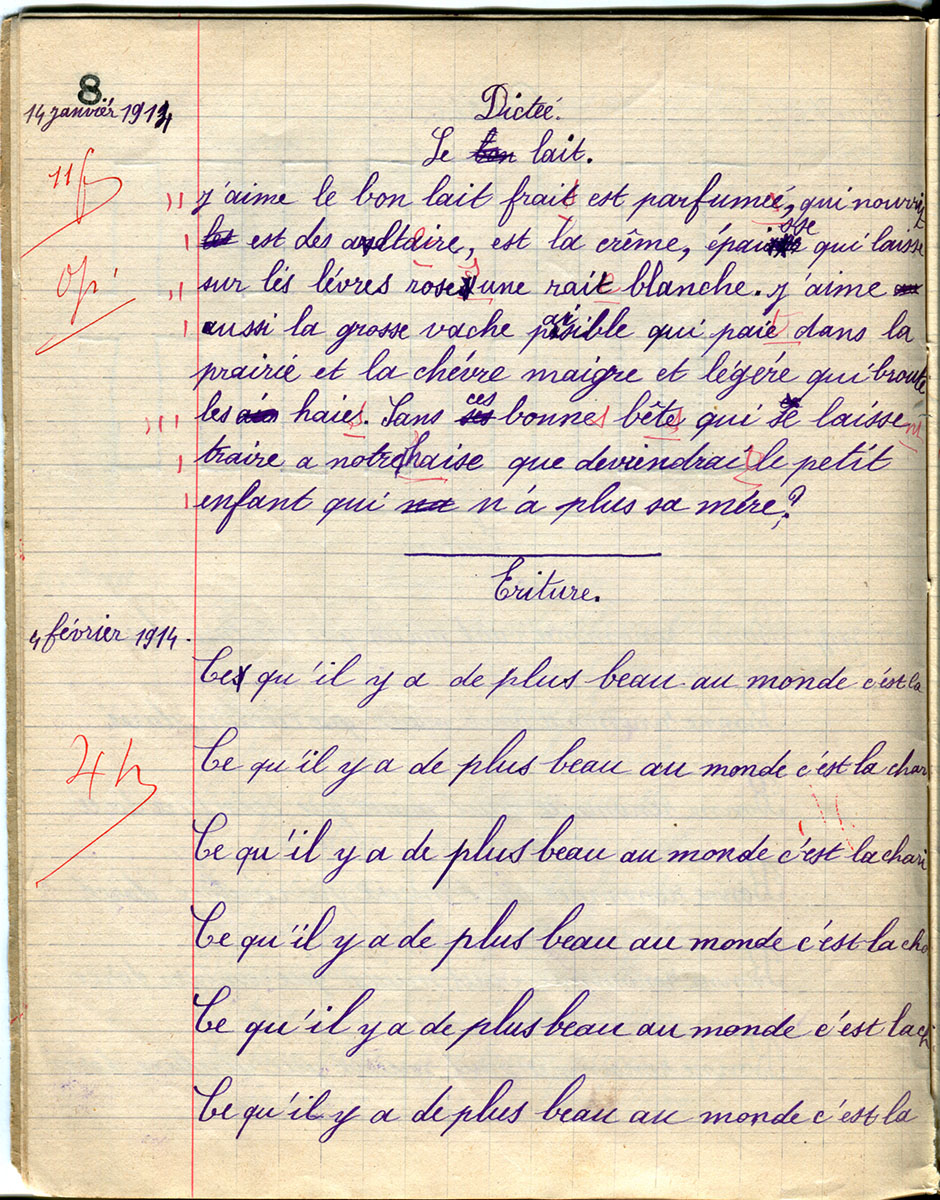 8
14 janvier 1914
Dictée.
Le bon lait.
11f
0pi
j'aime le bon lait frait est parfumeé, qui nourrit
les est des adltaire, est la crême, épaisse qui laisse
sur lés lévres roses une rait blanche. j'aime
aussi la grosse vache paisible qui paie dans la
prairié et la chévre maigre et légéré qui broute
les haies. Sans ces bonne bête qui se laisse
traire a notre haise que deviendrai le petit
enfant qui n'a plus sa mére?
Eriture.
4 février 1914.
4 h
Ce qu'il y a de plus beau au monde c'est la
Ce qu'il y a de plus beau au monde c'est la chari
Ce qu'il y a de plus beau au monde c'est la chari
Ce qu'il y a de plus beau au monde c'est la cha
Ce qu'il y a de plus beau au monde c'est la ch
Ce qu'il y a de plus beau au monde c'est la